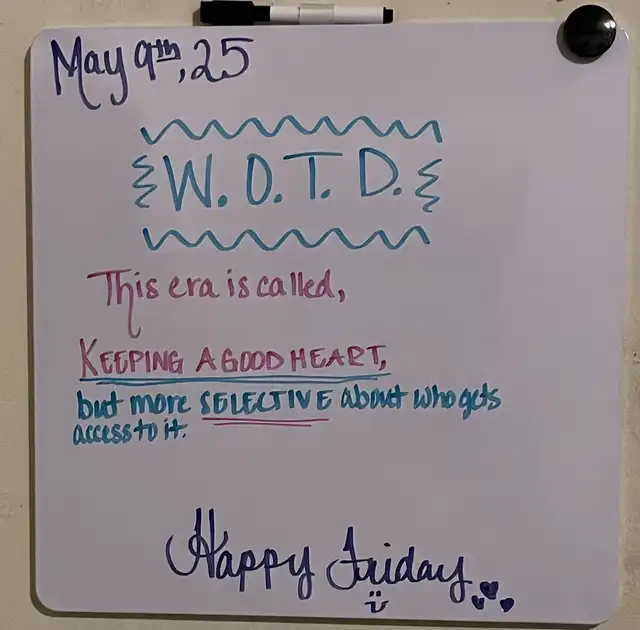 May 9th, 25
W.O.T.D.
This era is called,
KEEPING A GOOD HEART,
but more SELECTIVE about who gets
access to it.
Happy Friday